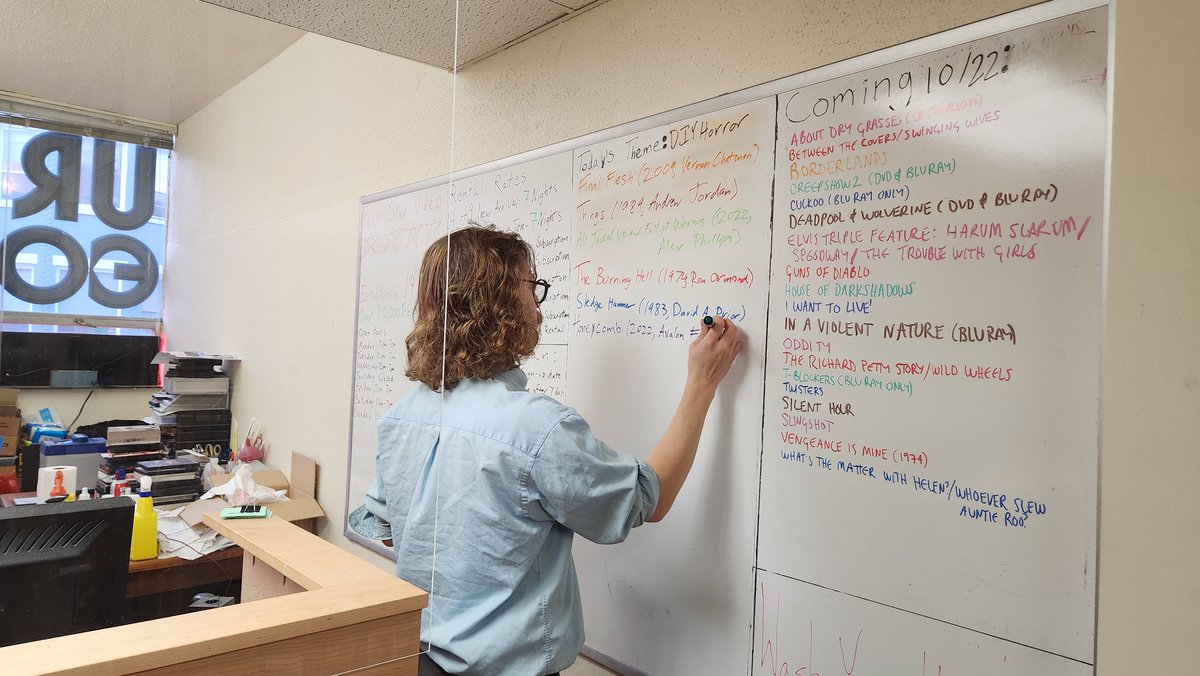 UR
GO
Four Star Video
Rental Rates
New Arrival: 7 Nights
7 Nights
Subscription
Subscription
Subscription
Rental
Today's Theme: DIY Horror
Final Flesh (2009, Vernon Chatman)
Things (1989, Andrew Jordan)
All Jacked Up and Full of Worms (2022,
Alex Phillips)
The Burning Hell (1974, Ron Ormond)
Sledge Hammer (1983, David A. Prior)
Honeycomb (2022, Avalon
Coming 10/22:
ABOUT DRY GRASSES (CRITERION)
BETWEEN THE COVERS/SWINGING WIVES
BORDERLANDS
CREEPSHOW 2 (DVD & BLURAY)
CUCKOO (BLURAY ONLY)
DEADPOOL & WOLVERINE (DVD & BLURAY)
ELVIS TRIPLE FEATURE: HARUM SCARUM/
SPEEDWAY/THE TROUBLE WITH GIRLS
GUNS OF DIABLO
HOUSE OF DARK SHADOWS
I WANT TO LIVE!
IN A VIOLENT NATURE (BLURAY)
ODDITY
THE RICHARD PETTY STORY/WILD WHEELS
T-BLOCKERS (BLURAY ONLY)
TWISTERS
SILENT HOUR
SLINGSHOT
VENGEANCE IS MINE (1974)
WHAT'S THE MATTER WITH HELEN?/WHOEVER SLEW
AUNTIE ROO?